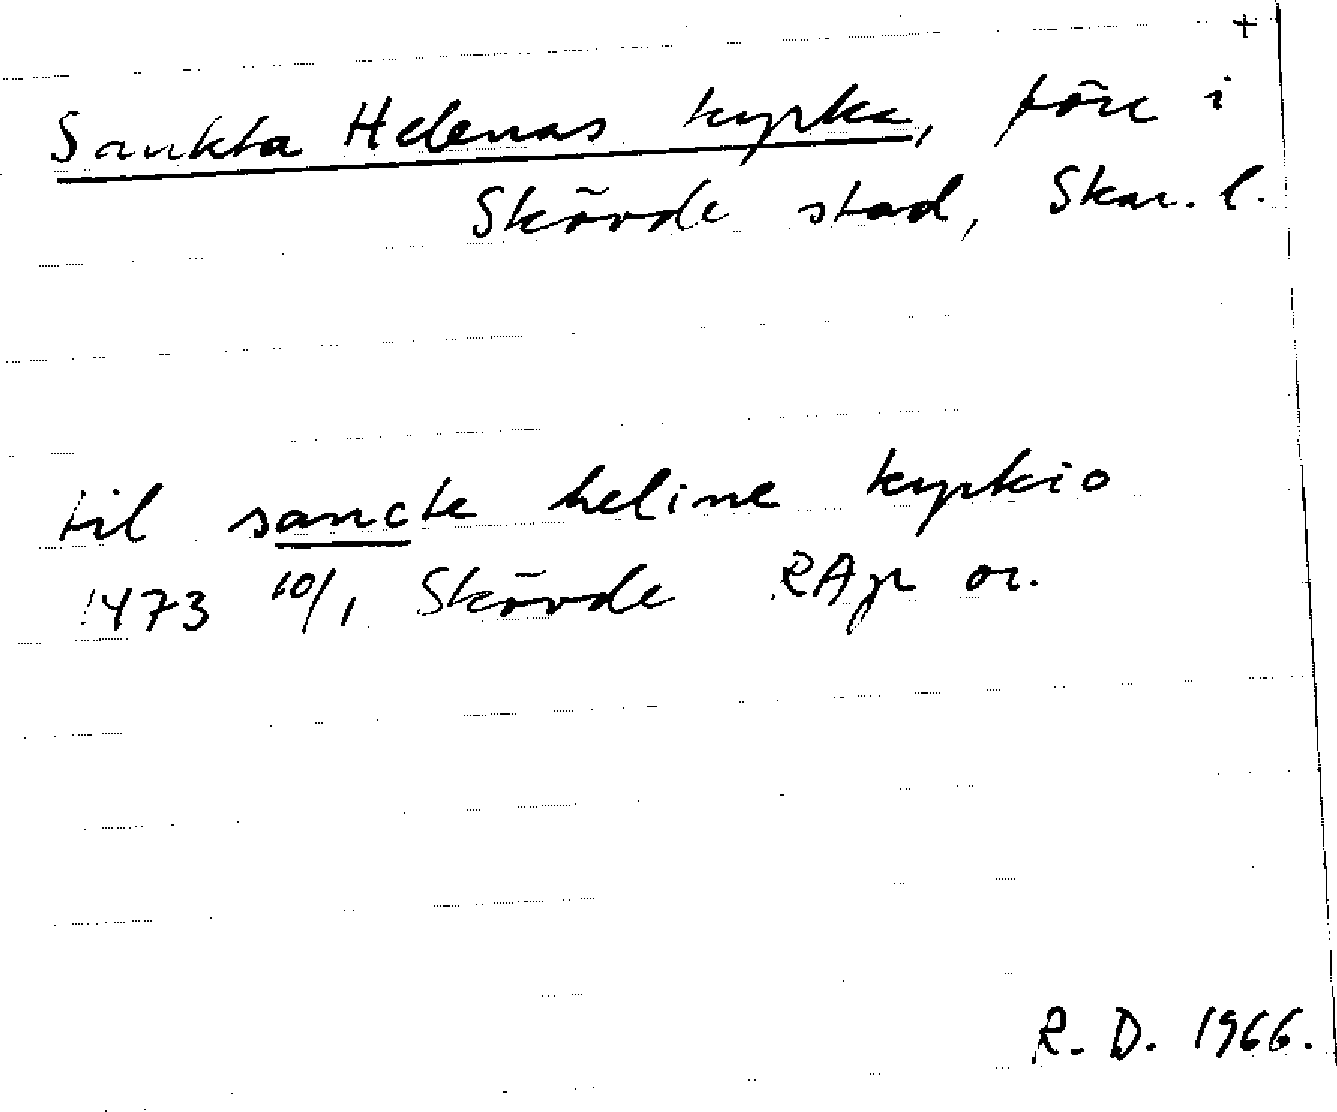 +
Sankta Helenas kyrka, förr i
Skövde stad, Skar. l.
til sancte heline kyrkio
1473 10/1 Skövde RAp or.
R. D. 1966.